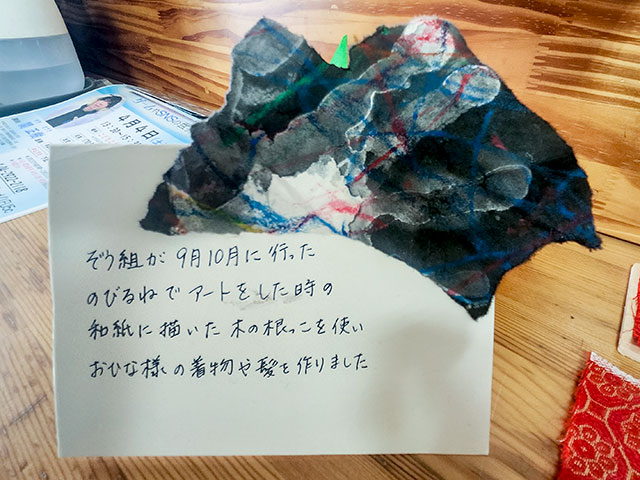 4月4日
ぞう組が 9月10月に行った
のびるねで アートをした時の
和紙に描いた 木の根っこを使い
おひな様の着物や髪を作りました